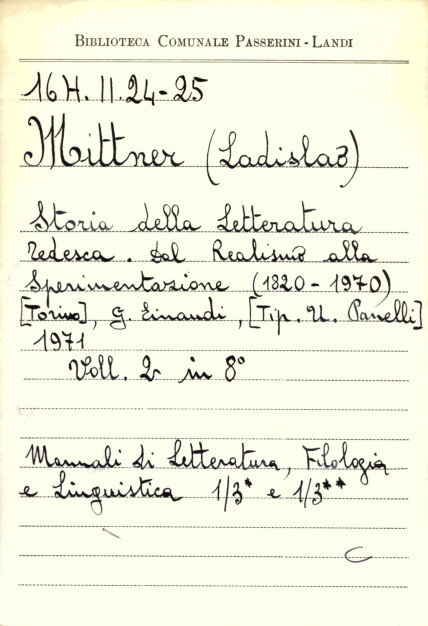 BIBLIOTECA COMUNALE PASSERINI - LANDI
16H.II.24-25
Mittner (Ladislao)
Storia della Letteratura
Tedesca. Dal Realismo alla
Sperimentazione (1820 - 1970)
[Torino], G. Einaudi, [Tip. U. Panelli]
1971
Voll. 2 in 8°
Manuali di Letteratura, Filologia
e Linguistica 1/3* e 1/3**
C